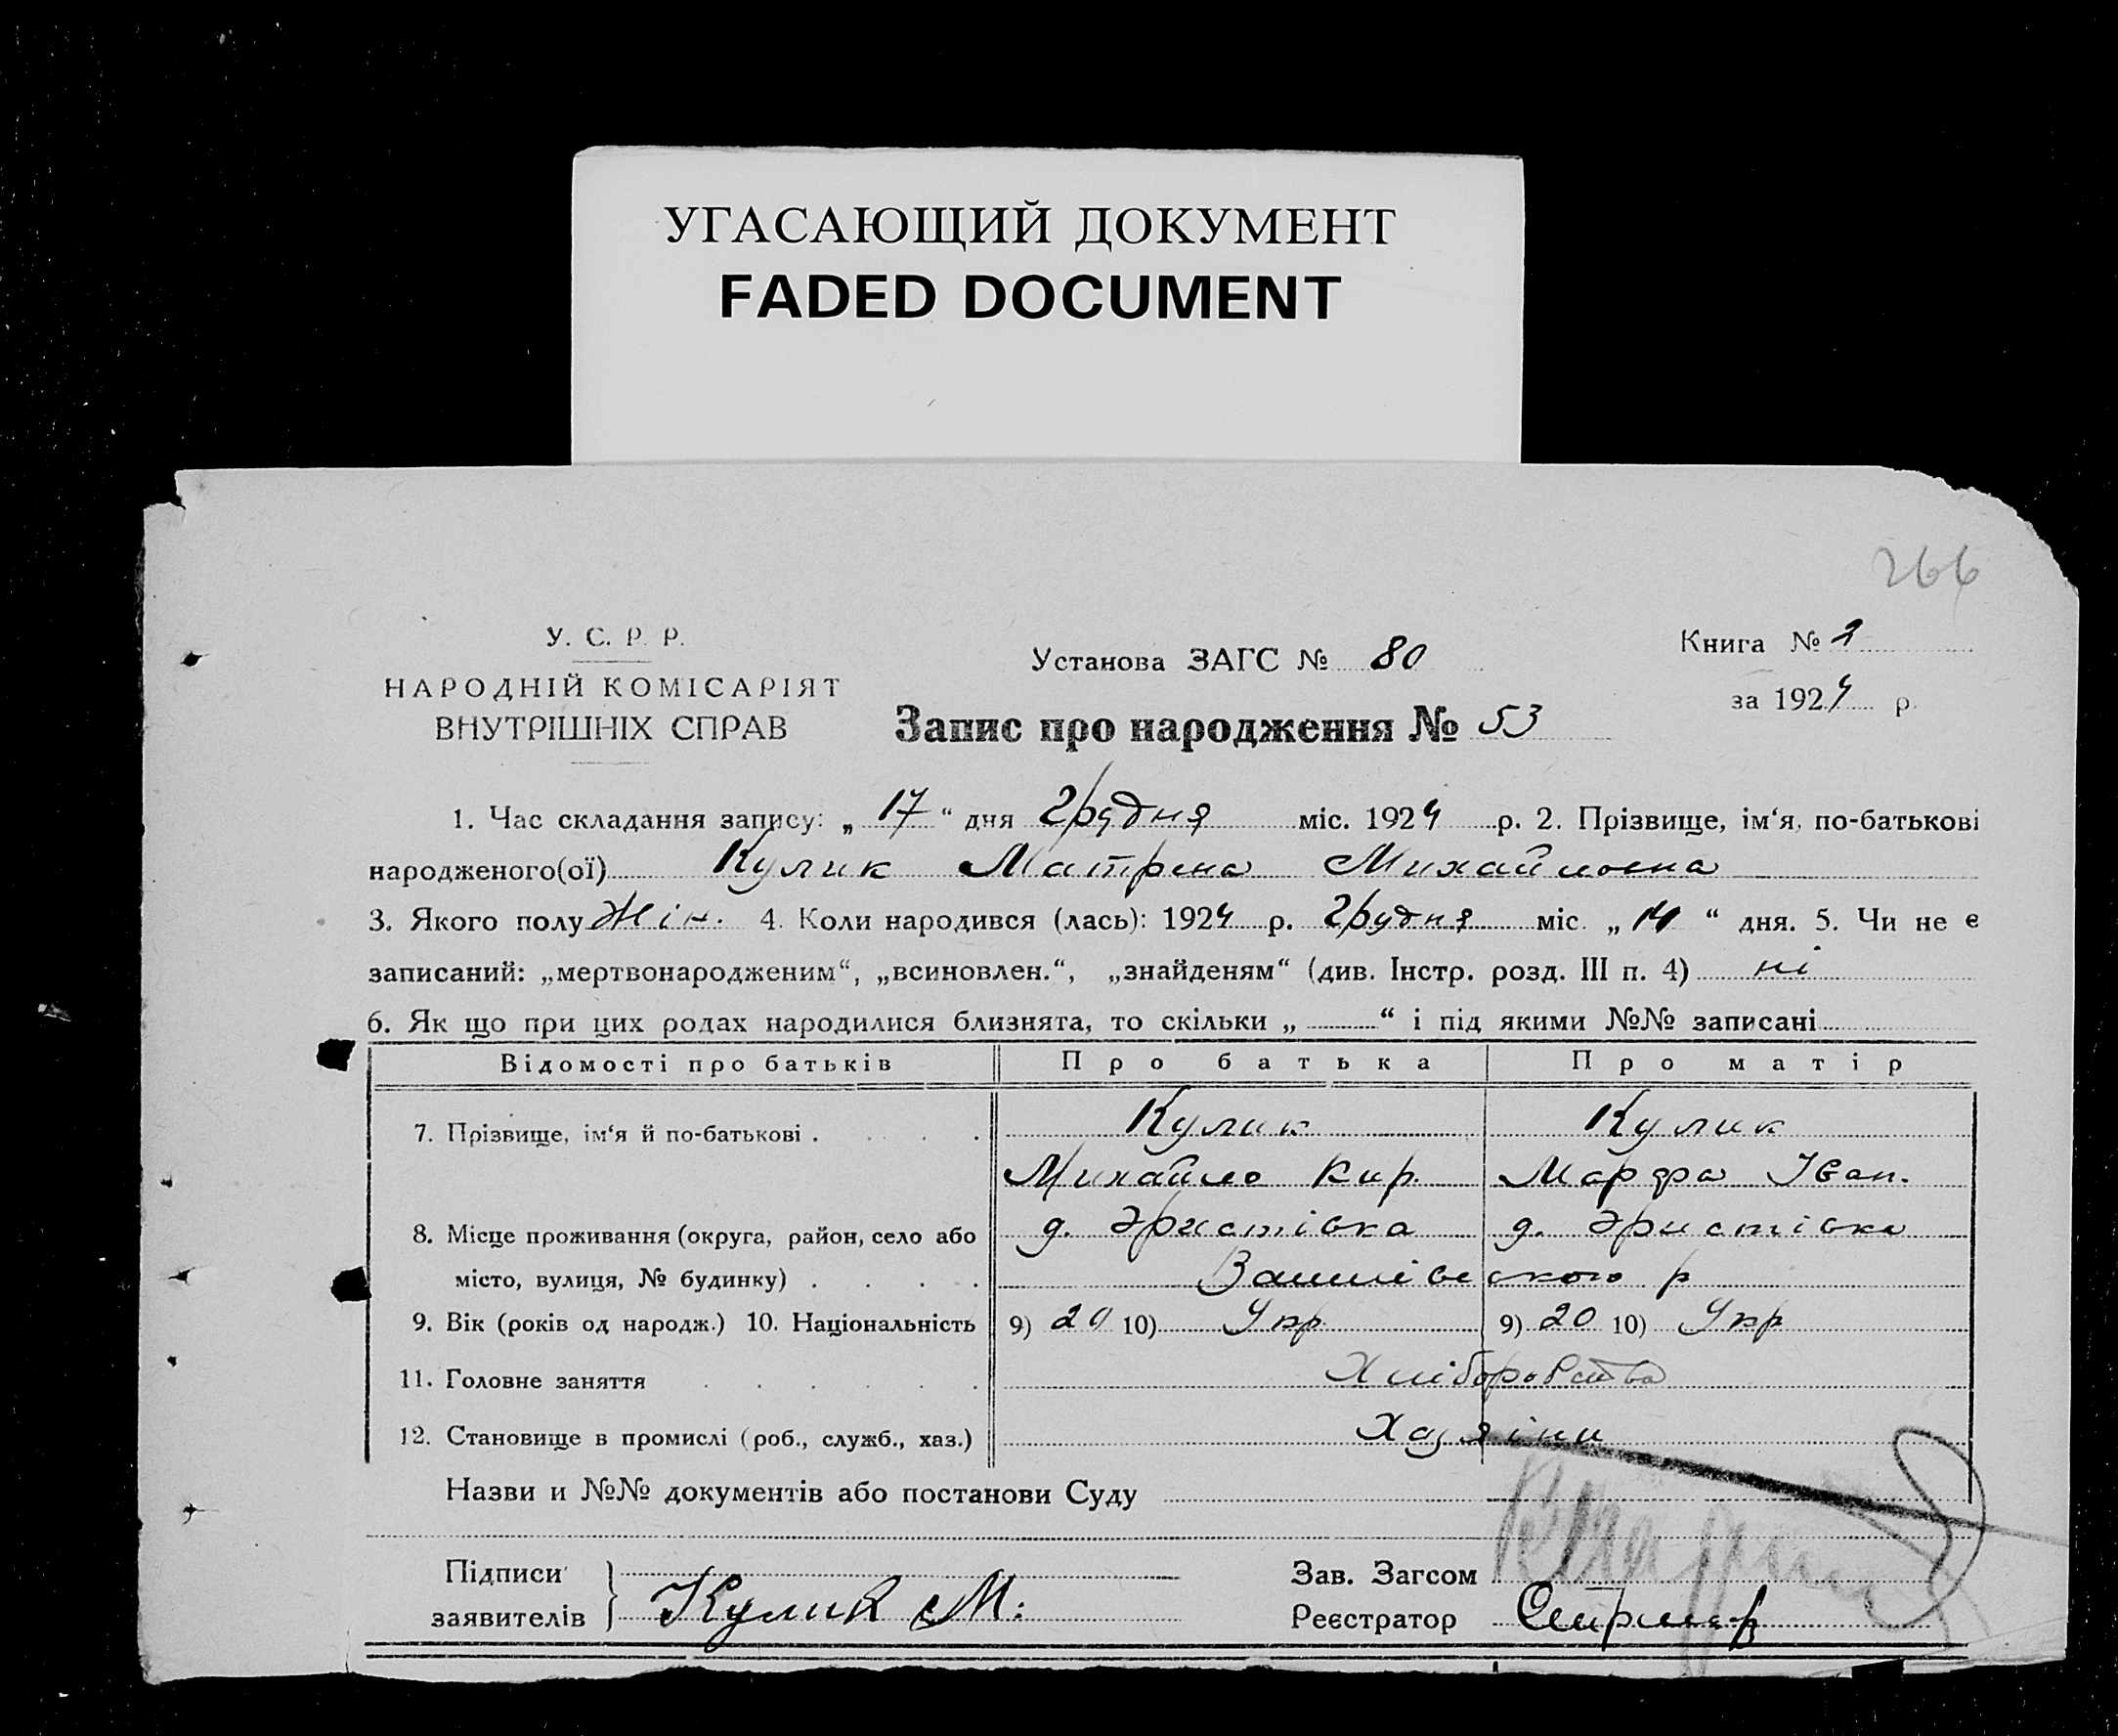 УГАСАЮЩИЙ ДОКУМЕНТ
FADED DOCUMENT
266
У. С. Р. Р.
НАРОДНІЙ КОМІСАРІЯТ
ВНУТРІШНІХ СПРАВ
Установа ЗАГС № 80
Запис про народження № 53
Книга № 1
за 1924 р.
1. Час складання запису: „ 17 “ дня Грудня міс. 1924 р. 2. Прізвище, ім‘я, по-батькові
народженого(ої) Кулик Матрена Михайловна
3. Якого полу Жін. 4. Коли народився (лась): 1924 р. Грудня міс. „ 14 “ дня. 5. Чи не є
записаний: „мертвонародженим“, „всиновлен.“, „знайденям“ (див. Інстр. розд. III п. 4) ні
6. Як що при цих родах народилися близнята, то скільки „ “ і під якими №№ записані
Відомості про батьків Про батька Про матір
7. Прізвище, ім‘я й по-батькові . . . . . Кулик Кулик
Михайло Кир. Марфа Іван.
8. Місце проживання (округа, район, село або д. Эристівка д. Эристівка
місто, вулиця, № будинку) . . . . ського р
9. Вік (років од народж.) 10. Національність 9) 20 10) Укр. 9) 20 10) Укр
11. Головне заняття . . . . . . Хліборобства
12. Становище в промислі (роб., служб., хаз.) Хазяіни
Назви и №№ документів або постанови Суду
Підписи
заявителів } Кулик М.
Зав. Загсом
Реєстратор